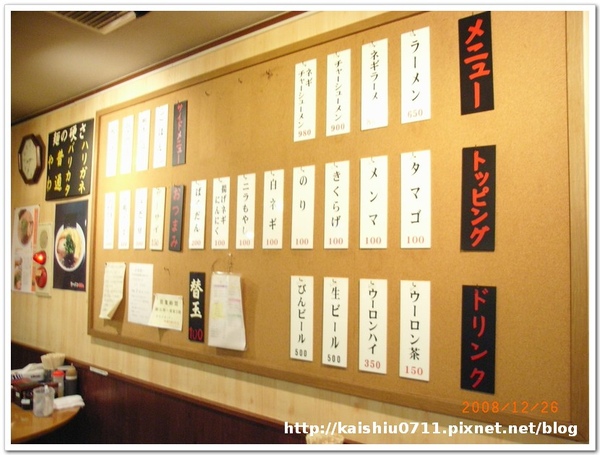 メニュー
ラーメン
650
ネギラーメン
チャーシューメン
900
ネギ
チャーシューメン
980
サイドメニュー
トッピング
タマゴ
100
メンマ
100
きくらげ
100
のり
100
白ネギ
100
ニラもやし
100
揚げネギ
にんにく
100
100
おつまみ
ドリンク
ウーロン茶
150
ウーロンハイ
350
生ビール
500
びんビール
500
替玉
100
麺の硬さ
ハリガネ
バリカタ
普通
やわ
2008/12/26
http://kaishiu0711.pixnet.net/blog